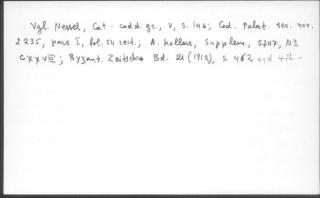 Vgl. Nessel, Cat. codd. gr., V, S. 146; Cod. Palat. ser. nov.
2235, pars I, fol. 54 rect.; A. Kollar, Supplem., S. 747, No
CXXVII; Byzant. Zeitschr. Bd. 21 (1912), S. 462 und 472.-